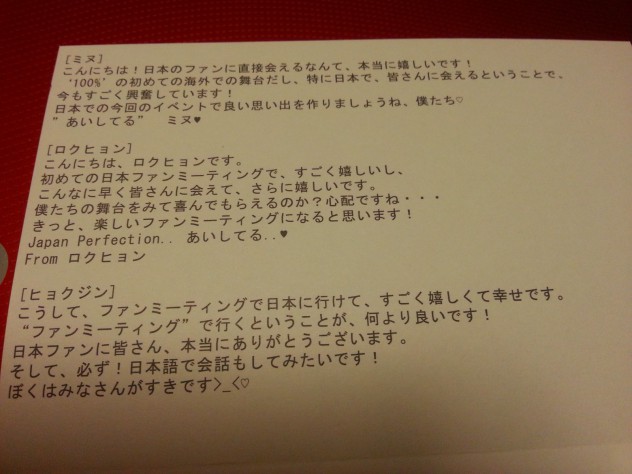 [ミヌ]
こんにちは！日本のファンに直接会えるなんて、本当に嬉しいです！
‘100%’の初めての海外での舞台だし、特に日本で、皆さんに会えるということで、
今もすごく興奮しています！
日本での今回のイベントで良い思い出を作りましょうね、僕たち♡
”あいしてる” ミヌ♥
[ロクヒョン]
こんにちは、ロクヒョンです。
初めての日本ファンミーティングで、すごく嬉しいし、
こんなに早く皆さんに会えて、さらに嬉しいです。
僕たちの舞台をみて喜んでもらえるのか？心配ですね・・・
きっと、楽しいファンミーティングになると思います！
Japan Perfection.. あいしてる..♥
From ロクヒョン
[ヒョクジン]
こうして、ファンミーティングで日本に行けて、すごく嬉しくて幸せです。
“ファンミーティング”で行くということが、何より良いです！
日本ファンに皆さん、本当にありがとうございます。
そして、必ず！日本語で会話もしてみたいです！
ぼくはみなさんがすきです>_<♡